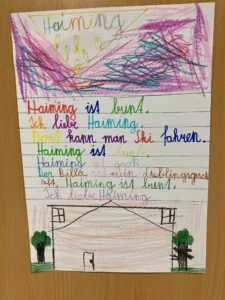 Haiming
Haiming ist bunt.
Ich liebe Haiming.
Dort kann man Ski fahren.
Haiming ist
Haiming ist groß.
Der Billa ist mein
Haiming ist bunt.
Ich liebe Haiming